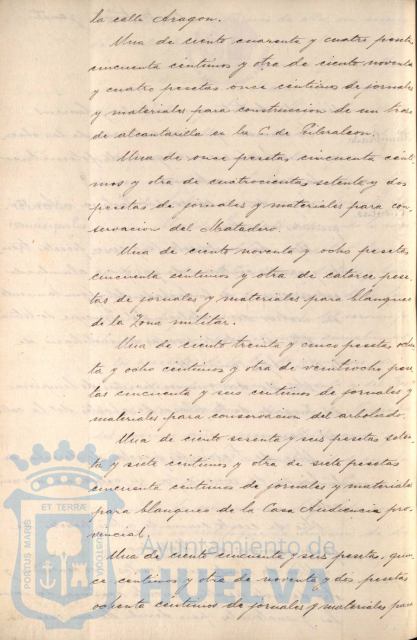 la calle Aragon.
Una de ciento cuarenta y cuatro peseta
cincuenta centimos y otra de ciento noventa
y cuatro pesetas once centimos de jornales
y materiales para construccion de un trozo
de alcantarilla en la C. de Gibraleon.
Una de once pesetas cincuenta cénti
mos y otra de cuatrocientas setenta y dos
pesetas de jornales y materiales para con
servacion del Matadero.
Una de ciento noventa y ocho pesetas
cincuenta céntimos y otra de catorce pese
tas de jornales y materiales para blanqueo
de la Zona militar.
Una de ciento treinta y cinco pesetas ochen
ta y ocho centimos y otra de veintiocho pese
tas cincuenta y seis centimos de jornales y
materiales para conservacion del arbolado.
Una de ciento sesenta y seis pesetas seten
ta y siete centimos y otra de siete pesetas
cincuenta centimos de jornales y materiales
para blanqueo de la Casa Audiencia pro
vincial.
Una de ciento cincuenta y seis pesetas, quin
ce centimos y otra de noventa y dos pesetas
ochenta centimos de jornales y materiales para
ET TERRÆ
PORTUS MARIS
CUSTODIA
Ayuntamiento de
HUELVA